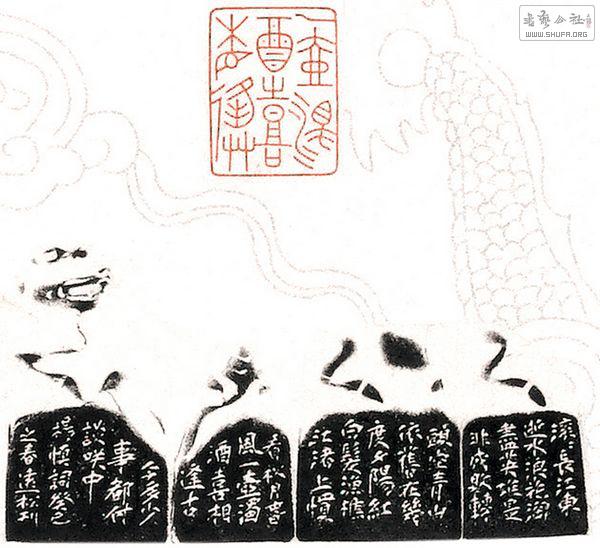 书艺公社
WWW.SHUFA.ORG
一壺濁
酒喜
相逢
滾長江東
逝水浪花淘
盡英雄是
非成敗轉
頭空青山
依舊在幾
度夕陽紅
白髮漁樵
江渚上慣
看秋月春
風一壺濁
酒喜相
逢古
今多少
事都付
談咲中
楊慎詞癸巳
之春遠松刊